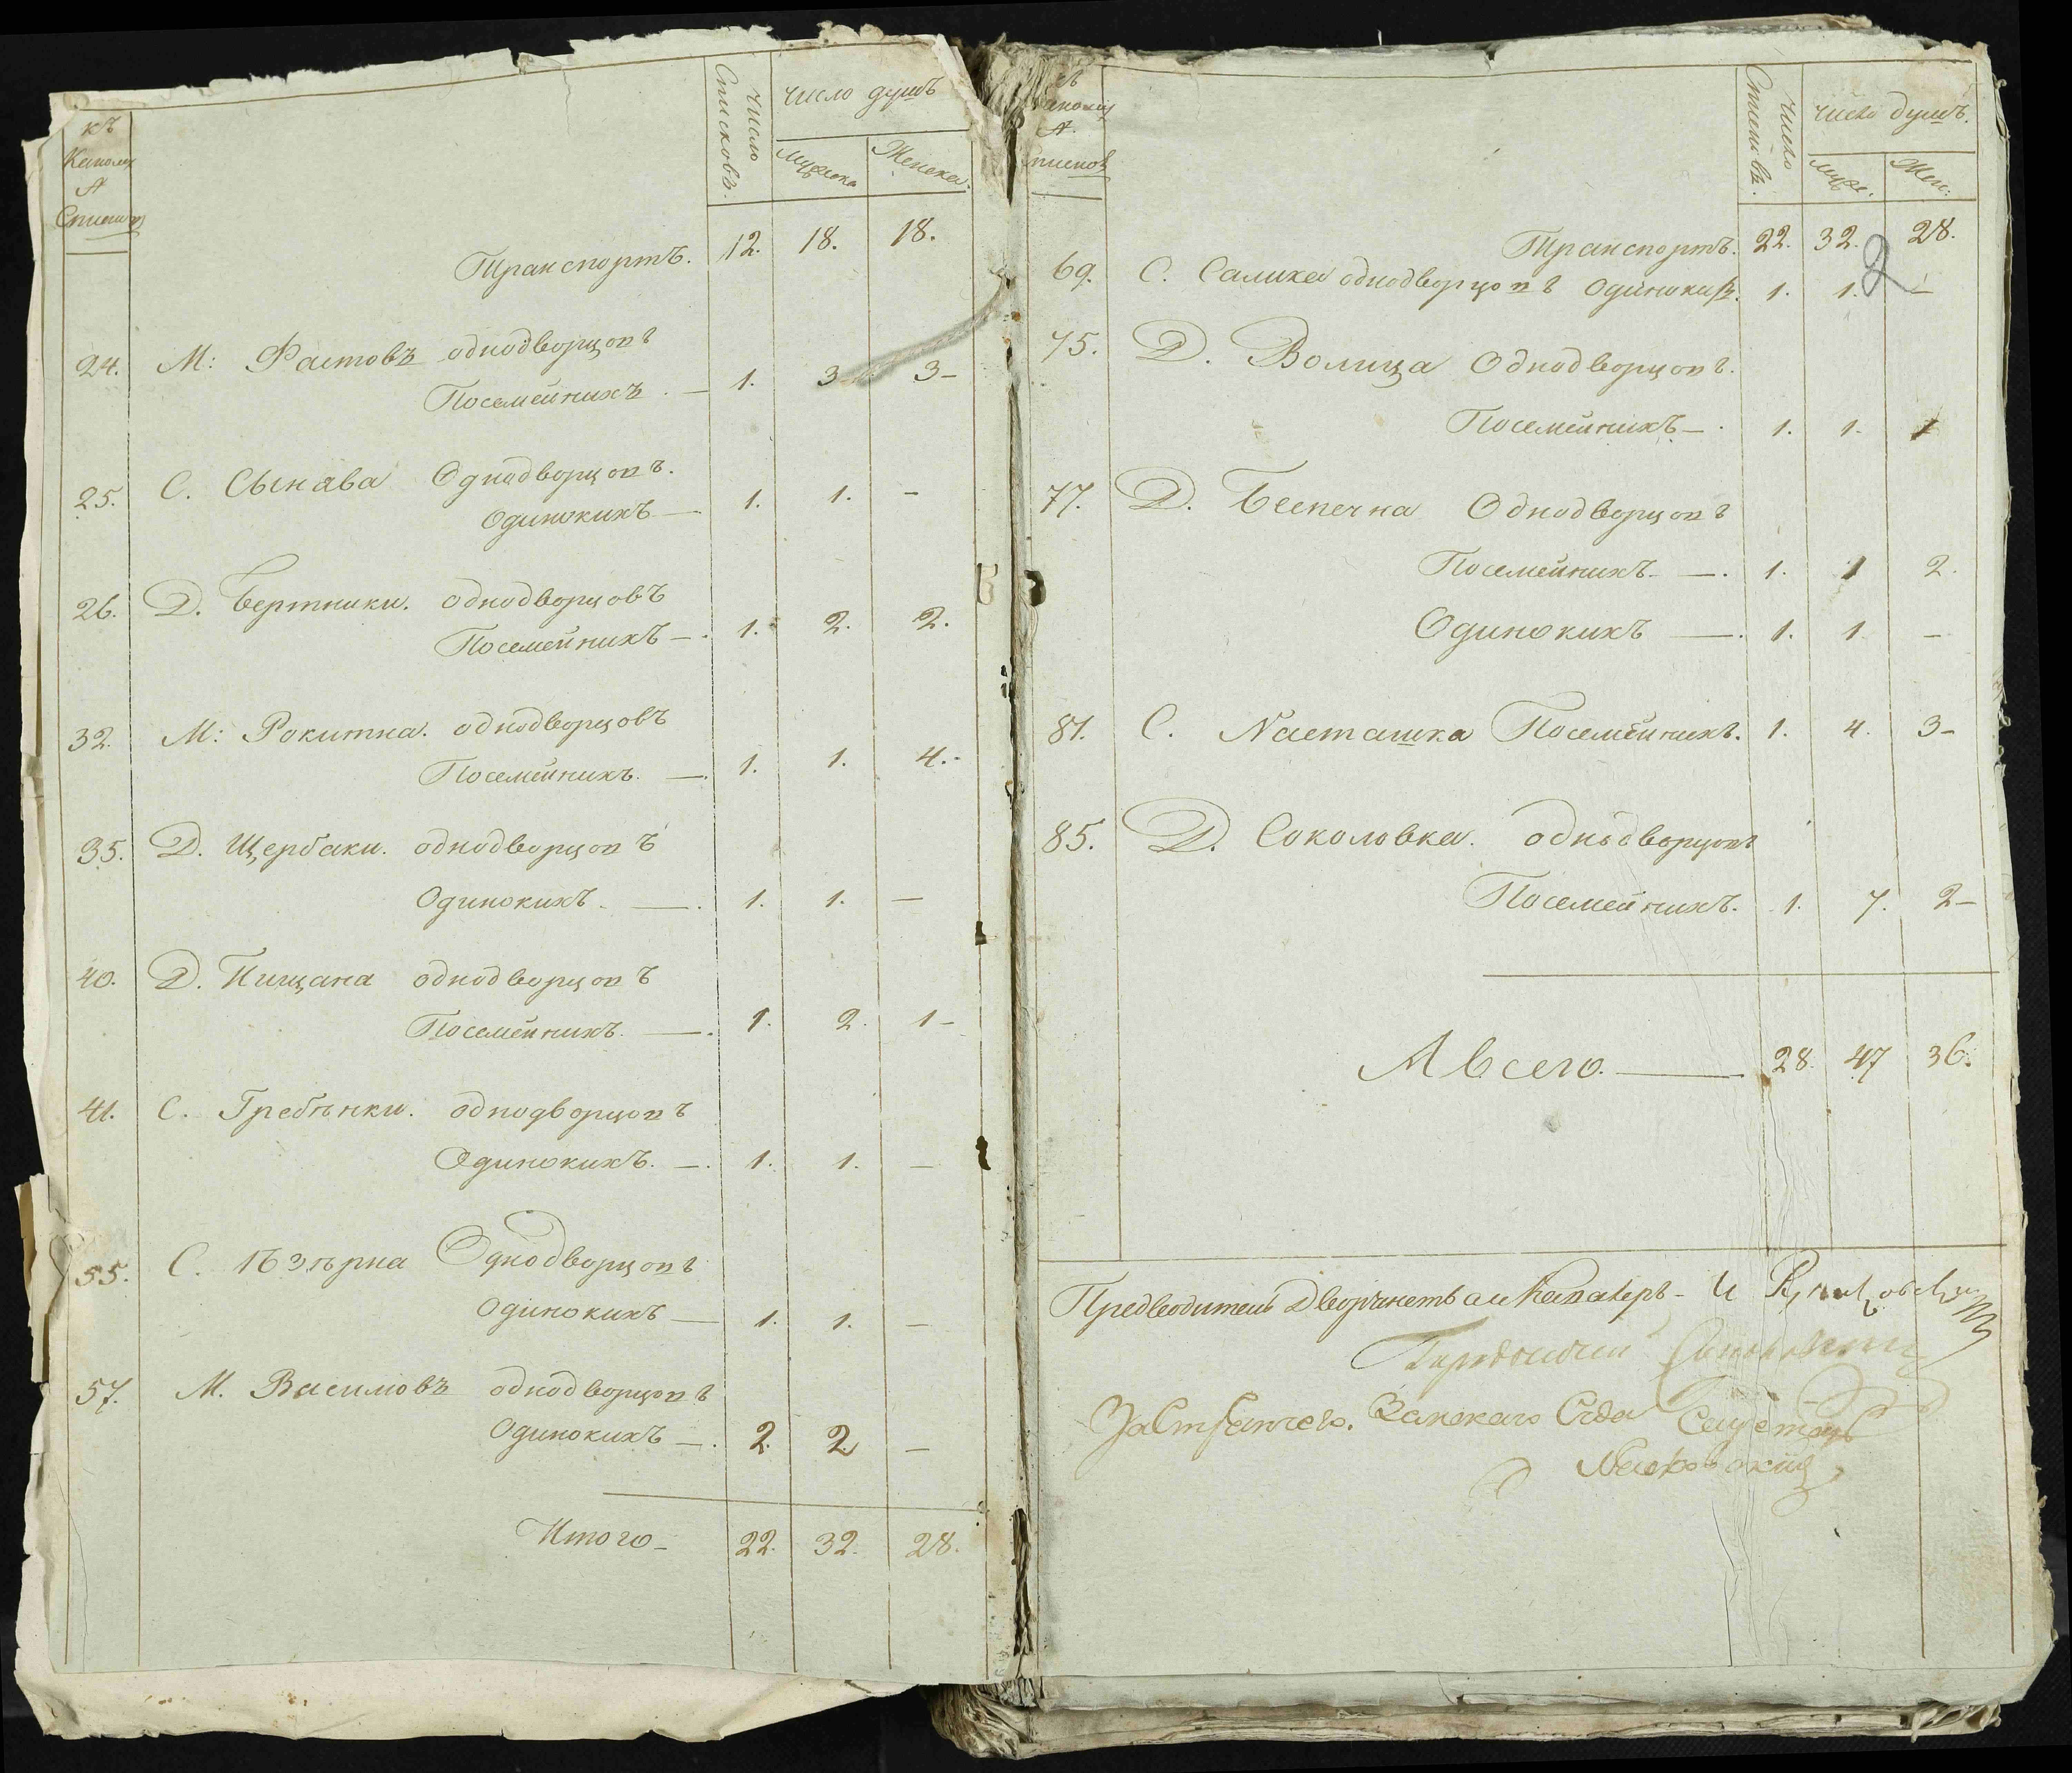 къ
А
Число Списковъ.
число душъ
Мужеска
Женска.
Транспортъ. 12. 18. 18.
24. М: Фастовъ однодворцовъ
Посемейникъ. — 1. 3 3-
25. С. Сынава Однодворцовъ.
Одинокихъ — 1. 1. -
26. Д. Вертники. однодворцовъ
Посемейникъ — . 1. 2. 2.
32. М: Рокитна. однодворцовъ
Посемейникъ. — . 1. 1. 4.-
35. Д. Щербаки. однодворцовъ
Одинокихъ. — . 1. 1. —
40. Д. Пищана однодворцовъ
Посемейникъ. — . 1. 2. 1-
41. С. Гребѣнки. однодворцовъ
Одинокихъ. — . 1. 1. —
55. С. Ѣзѣрна Однодворцовъ
Одинокихъ — 1. 1. —
57. М. Василіовъ однодворцовъ
Одинокихъ — . 2. 2 —
Итого - 22. 32. 28.
А.
Списковъ
Число Списковъ.
число душъ.
муже.
Жен:
Транспортъ. 22. 32. 28.
2
69. С. Салиха однодворцовъ Одинокихъ. 1. 1. —
75. Д. Волица Однодворцовъ.
Посемейникъ — . 1. 1. 1
77. Д. Беспечна Однодворцовъ
Посемейникъ. — . 1. 1 2.
Одинокихъ — . 1. 1. —
81. С. Насташка Посемейникъ. 1. 4. 3-
85. Д. Соколовка. однодворцовъ
Посемейникъ. 1. 7. 2-
А всего. — 28. 47 36.
Предводитель Дворянства и Кавалеръ - И
За Стряпчего. Земскаго Суда Секретарь